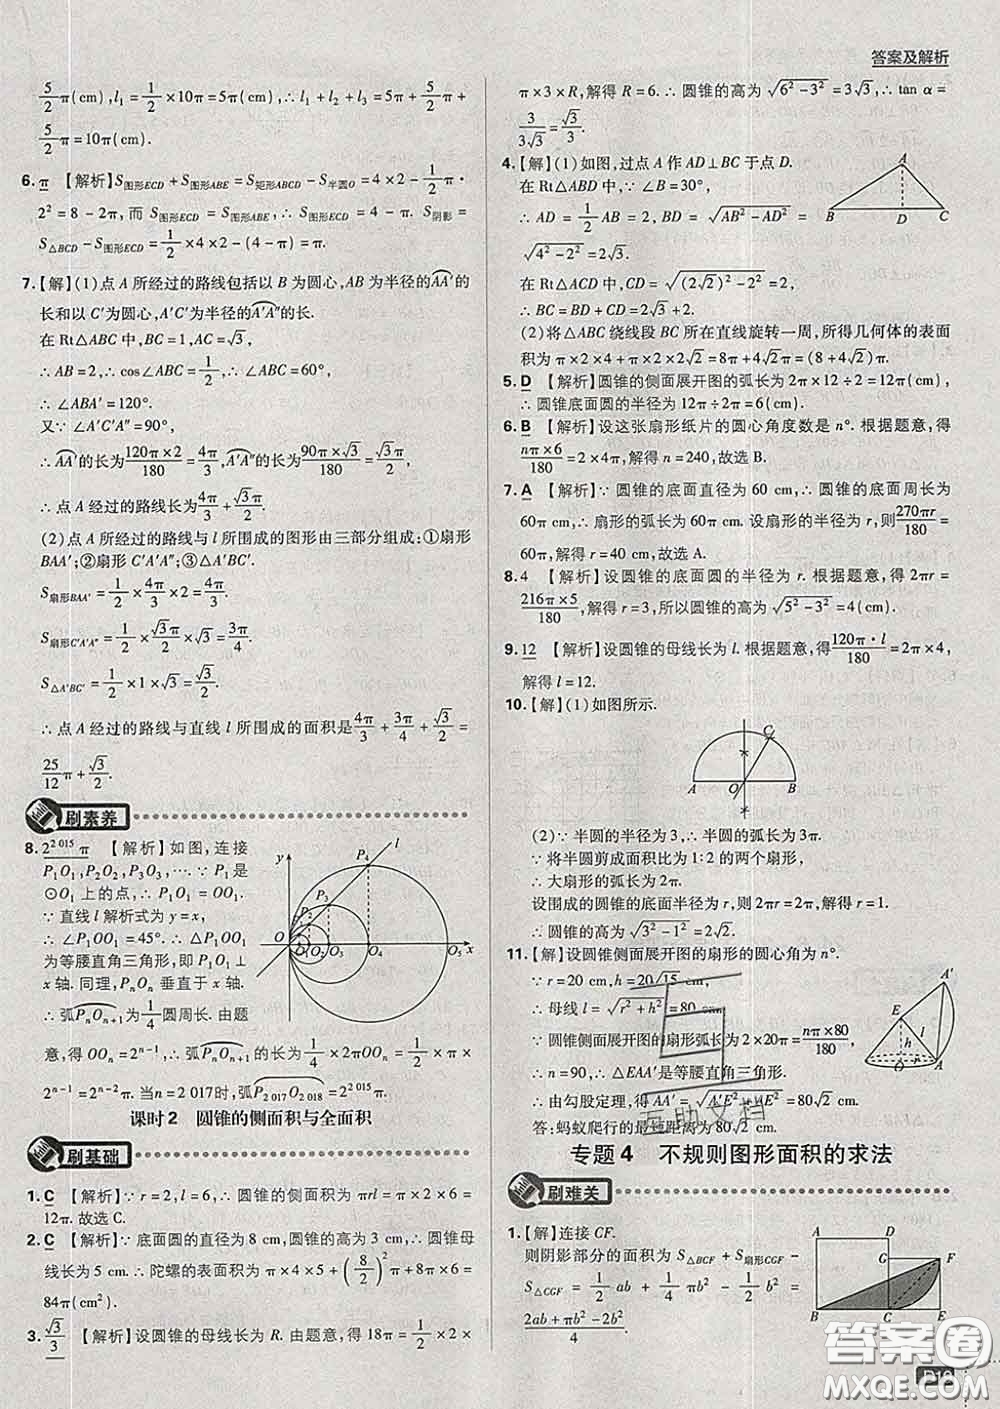 答案及解析
5/2 π(cm), l₁ = 1/2 × 10π = 5π(cm), ∴ l₁ + l₂ + l₃ = 5π + 5/2 π +
5/2 π = 10π(cm).
6. π 【解析】S图形ECD + S图形ABE = S矩形ABCD − S半圆O = 4×2 − 1/2 π·
2² = 8 − 2π, 而 S图形ECD = S图形ABE, ∴ S图形ECD = 4 − π. S阴影 =
S△BCD − S图形ECD = 1/2 ×4×2 − (4 − π) = π.
7.【解】(1)点 A 所经过的路线包括以 B 为圆心, AB 为半径的AA′的
长和以 C′为圆心, A′C′为半径的A′A″的长.
在 Rt△ABC 中, BC = 1, AC = √3,
∴ AB = 2, ∴ cos∠ABC = 1/2, ∴ ∠ABC = 60°,
∴ ∠ABA′ = 120°.
又∵ ∠A′C′A″ = 90°,
∴ AA′的长为 120π×2/180 = 4π/3, A′A″的长为 90π×√3/180 = √3π/2,
∴ 点 A 经过的路线长为 4π/3 + √3π/2.
(2)点 A 所经过的路线与 l 所围成的图形由三部分组成:①扇形
BAA′;②扇形 C′A′A″;③△A′BC′.
S扇形BAA′ = 1/2 × 4π/3 × 2 = 4π/3,
S扇形C′A′A″ = 1/2 × √3π/2 × √3 = 3π/4,
S△A′BC′ = 1/2 × 1 × √3 = √3/2,
∴ 点 A 经过的路线与直线 l 所围成的面积是 4π/3 + 3π/4 + √3/2 =
25/12 π + √3/2.
刷素养
8. 2^2 015 π 【解析】如图, 连接
P₁O₁, P₂O₂, P₃O₃, …. ∵ P₁ 是
⊙O₁ 上的点, ∴ P₁O₁ = OO₁.
∵ 直线 l 解析式为 y = x,
∴ ∠P₁OO₁ = 45°. ∴ △P₁OO₁
为等腰直角三角形, 即 P₁O₁ ⊥
x 轴. 同理, PₙOₙ 垂直于 x 轴.
∴ 弧PₙOₙ₊₁为1/4圆周长. 由题
意, 得 OOₙ = 2ⁿ⁻¹, ∴ 弧PₙOₙ₊₁的长为 1/4 × 2πOOₙ = 1/2 π ×
2ⁿ⁻¹ = 2ⁿ⁻² π. 当 n = 2 017时, 弧P2 017O2 018 = 2^2 015 π.
y l P₄ P₃ P₂ O₁ O₂ O₃ O₄ O₅ x
课时2 圆锥的侧面积与全面积
刷基础
1. C 【解析】∵ r = 2, l = 6, ∴ 圆锥的侧面积为 πrl = π×2×6 =
12π. 故选 C.
2. C 【解析】∵ 底面圆的直径为 8 cm, 圆锥的高为 3 cm, ∴ 圆锥母
线长为 5 cm, ∴ 陀螺的表面积为 π×4×5 + (8/2)² π + 8π×6 =
84π(cm²).
3. √3/3 【解析】设圆锥的母线长为 R. 由题意, 得 18π = 1/2 × 2 ×
π×3×R, 解得 R = 6. ∴ 圆锥的高为 √(6² − 3²) = 3√3, ∴ tan α =
3/(3√3) = √3/3.
4.【解】(1)如图, 过点 A 作 AD⊥BC 于点 D.
在 Rt△ABD 中, ∵ ∠B = 30°,
∴ AD = 1/2 AB = 2, BD = √(AB² − AD²) =
√(4² − 2²) = 2√3.
在 Rt△ACD 中, CD = √((2√2)² − 2²) = 2,
∴ BC = BD + CD = 2√3 + 2.
A B D C
(2)将△ABC 绕线段 BC 所在直线旋转一周, 所得几何体的表面
积为 π×2×4 + π×2×2√2 = 8π + 4√2π = (8 + 4√2)π.
5. D 【解析】圆锥的侧面展开图的弧长为 2π×12÷2 = 12π(cm),
∴ 圆锥底面圆的半径为 12π÷2π = 6(cm).
6. B 【解析】设这张扇形纸片的圆心角度数是 n°. 根据题意, 得
nπ×6/180 = 2×4π, 解得 n = 240, 故选 B.
7. A 【解析】∵ 圆锥的底面直径为 60 cm, ∴ 圆锥的底面周长为
60π cm, ∴ 扇形的弧长为 60π cm. 设扇形的半径为 r, 则 270πr/180
= 60π, 解得 r = 40 cm, 故选 A.
8. 4 【解析】设圆锥的底面圆的半径为 r. 根据题意, 得 2πr =
216π×5/180, 解得 r = 3, 所以圆锥的高为 √(5² − 3²) = 4(cm).
9. 12 【解析】设圆锥的母线长为 l. 根据题意, 得 120π·l/180 = 2π×4,
解得 l = 12.
10.【解】(1)如图所示.
C A O B
(2)∵ 半圆的半径为 3, ∴ 半圆的弧长为 3π.
∵ 将半圆剪成面积比为 1:2 的两个扇形,
∴ 大扇形的弧长为 2π.
设围成的圆锥的底面半径为 r, 则 2πr = 2π, 解得 r = 1.
∴ 圆锥的高为 √(3² − 1²) = 2√2.
11.【解】设圆锥侧面展开图的扇形的圆心角为 n°.
∵ r = 20 cm, h = 20√15 cm,
∴ 母线 l = √(r² + h²) = 80 cm,
∵ 圆锥侧面展开图的扇形弧长为 2×20π = nπ×80/180,
∴ n = 90, ∴ △EAA′是等腰直角三角形,
∴ 由勾股定理, 得 AA′ = √(A′E² + AE²) = 80√2 cm.
答:蚂蚁爬行的最短距离为 80√2 cm.
A′ E l h O r A
互助文档
专题4 不规则图形面积的求法
刷难关
1.【解】连接 CF.
则阴影部分的面积为 S△BCF + S扇形CGF −
S△CGF = 1/2 ab + 1/4 πb² − 1/2 b² =
(2ab + πb² − 2b²)/4.
A D G F B C E
答案圈
MXQE.COM
D19